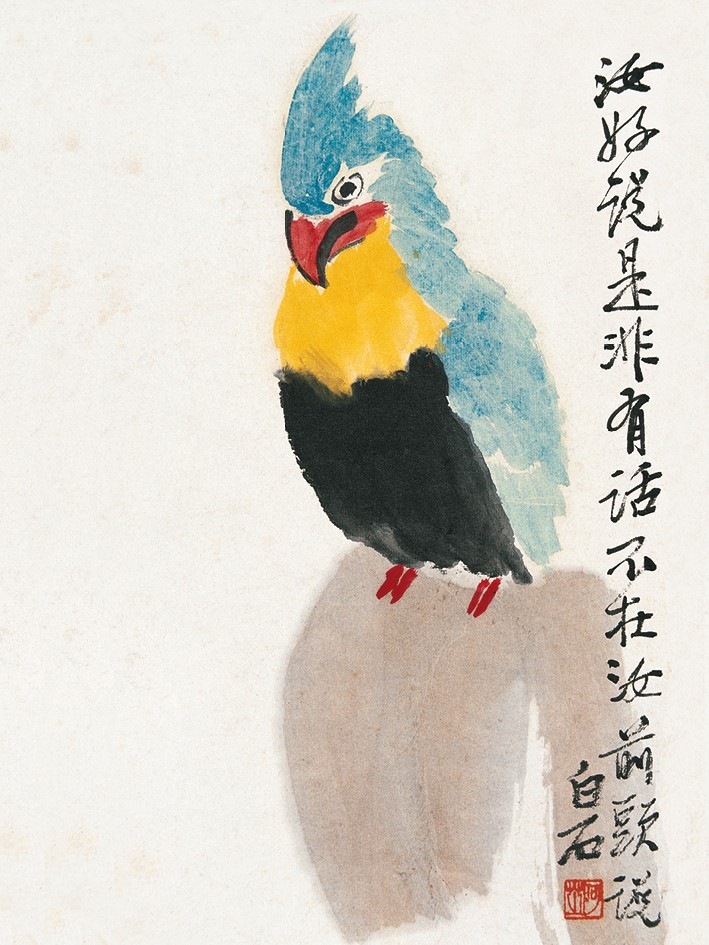 汝好说是非有话不在汝前頭说
白石